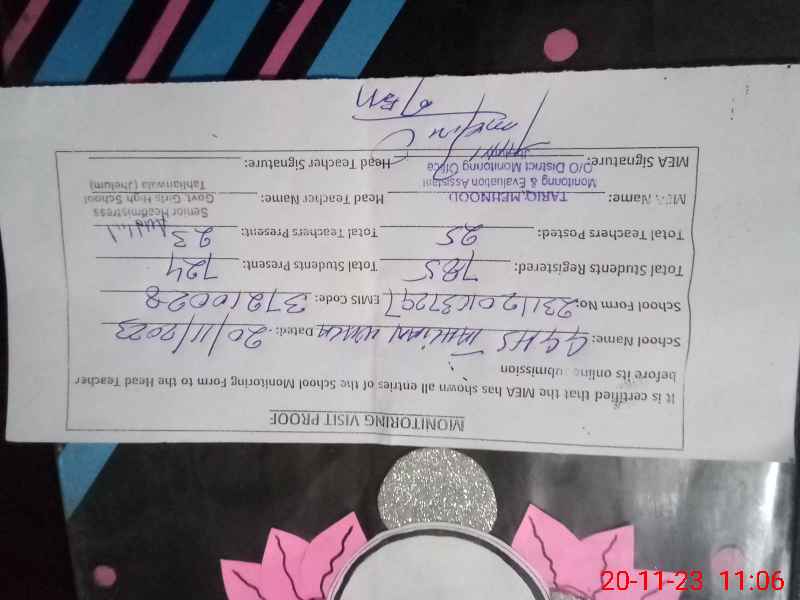 MONITORING VISIT PROOF
It is certified that the MEA has shown all entries of the School Monitoring Form to the Head Teacher
before its online submission
School Name: GGHS Dated: 20/11/2023
School Form No: EMIS Code: 37210028
Total Students Registered: 785 Total Students Present: 724
Total Teachers Posted: 25 Total Teachers Present: 23
MEA Name: TARIQ MEHMOOD Head Teacher Name: Senior Headmistress
Monitoring & Evaluation Assistant Govt. Girls High School
O/O District Monitoring Office Tahlianwala (Jhelum)
MEA Signature: Head Teacher Signature:
20-11-23 11:06